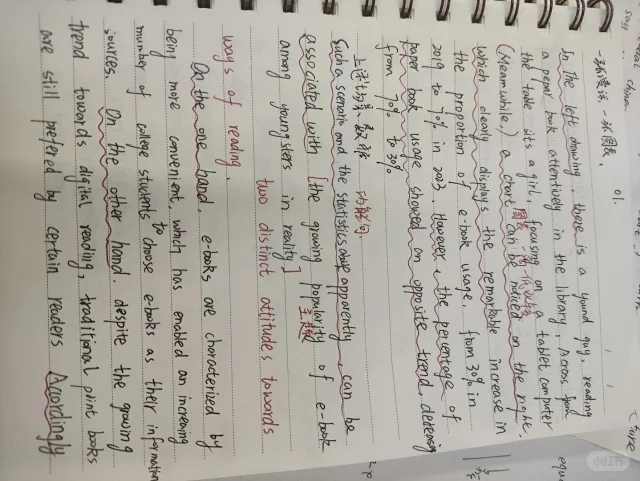 01.
In the left drawing, there is a yound guy, reading
a paper book attentively in the library, Across from
the table sits a girl, focusing on a tablet computer
(Meanwhile,) a chart can be noticed on the right,
which clearly displays the remarkable increase in
the proportion of e-book usage, from 30% in
2019 to 70% in 2023. However, the percentage of
paper book usage showed an opposite trend,
from 70% to 30%
功能句.
Such a scenario and the statistics above apparently, can be
associated with [the growing popularity of e-book
among youngsters in reality]
主题
two distinct attitudes towards
ways of reading.
On the one hand, e-books are characterized by
being more convenient, which has enabled an increasing
number of college students to choose e-books as their information
sources. On the other hand, despite the growing
trend towards digital reading, traditional print books
are still preferred by certain readers Accordingly
小红书